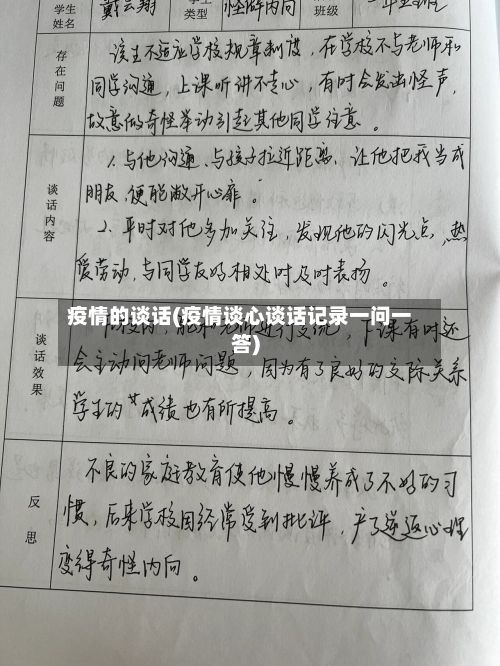 学生姓名 戴云翔 类型 怪僻内向 班级
存在问题
该生不适应学校规章制度，在学校不与老师和
同学沟通，上课听讲不专心，有时会发出怪声，
故意做奇怪举动引起其他同学注意。
谈话内容
1. 与他沟通，与孩子拉近距离，让他把我当成
朋友，便能敞开心扉。
2. 平时对他多加关注，发现他的闪光点，热
爱劳动，与同学友好相处时及时表扬。
疫情的谈话(疫情谈心谈话记录一问一
答)
谈话效果
下课有时还
会主动问老师问题，因为有了良好的交际关系
学生的成绩也有所提高。
反思
不良的家庭教育使他慢慢养成了不好的习
惯，后来学校因经常受到批评，产了逆返心理
变得奇怪内向。